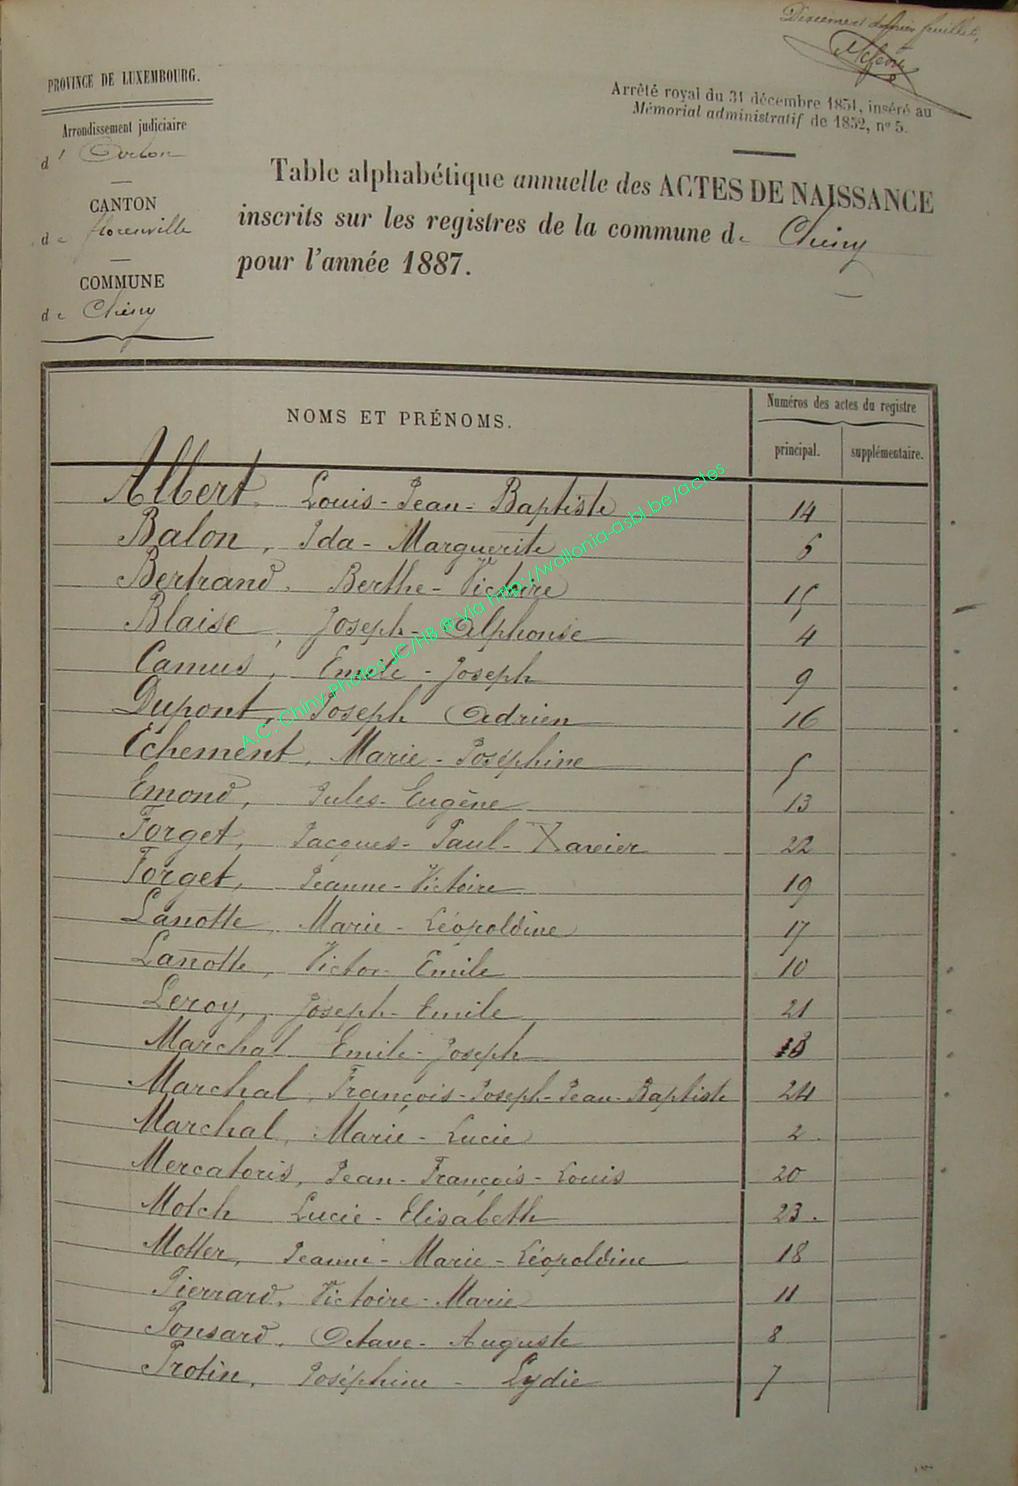 PROVINCE DE LUXEMBOURG.
Arrondissement judiciaire
d' Arlon
CANTON
de florenville
COMMUNE
de Chiny
Arrêté royal du 31 décembre 1851, inséré au
Mémorial administratif de 1852, nº 5.
Table alphabétique annuelle des ACTES DE NAISSANCE
inscrits sur les registres de la commune de Chiny
pour l'année 1887.
NOMS ET PRÉNOMS.
Numéros des actes du registre
principal. supplémentaire.
Albert, Louis-Jean-Baptiste 14
Balon, Ida-Marguerite 6
Bertrand, Berthe-Victoire 15
Blaise, Joseph-Alphonse 4
Camus, Emile-Joseph 9
Dupont, Joseph Adrien 16
Echement, Marie-Joséphine 5
Emond, Jules-Eugène 13
Forget, Jacques-Paul-Xavier 22
Forget, Jeanne-Victoire 19
Lanotte Marie-Léopoldine 17
Lanotte, Victor-Emile 10
Leroy, Joseph-Emile 21
Marchal Emile-Joseph
Marchal, François-Joseph-Jean-Baptiste 24
Marchal, Marie-Lucie 2
Mercatoris, Jean-François-Louis 20
Motch Lucie-Elisabeth 23
Motter, Jeanne-Marie-Léopoldine 18
Pierrard, Victoire-Marie 11
Ponsard, Octave-Auguste 8
Protin, Joséphine-Lydie 7
A.C. Chiny Photos JC/HB ® Via http://wallonia-asbl.be/actes